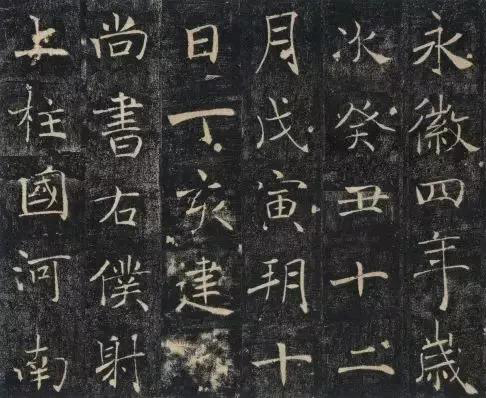 永徽四年歲
次癸丑十二
月戊寅玥十
日丁亥建
尚書右僕射
上柱國河南